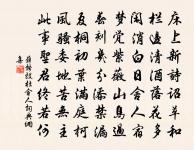 床上新詩詔草和
欄邊清酒落花多
閑消白日舍人宿
夢覺紫薇山鳥過
春刻幾分添禁漏
夏桐初葉滿庭柯
風騷委地苦無主
此事聖君終若何
薛能投杜舍人詞典網